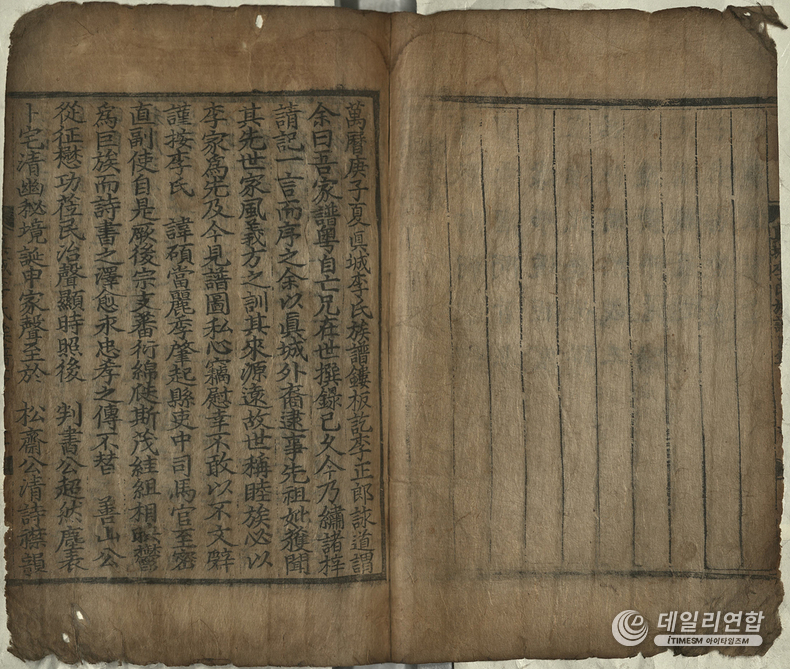 萬曆庚子夏眞城李氏族譜鏤板訖李正郎詠道謂
余曰吾家譜粤自亡兄在世撰録已久今乃繡諸梓
請記一言而序之余以眞城外裔逮事先祖妣獲聞
其先世家風義方之訓其來源遠故世稱睦族必以
李家爲先及今見譜圖私心竊慰幸不敢以不文辭
謹按李氏 諱碩當麗季肇起縣吏中司馬官至密
直副使自是厥後宗支蕃衍綿瓞斯茂絓組相聯鬱
爲巨族而詩書之澤愈永忠孝之傳不替 善山公
從征懋功莅民冶聲顯時照後 判書公超然塵表
卜宅清幽秘境誕申家聲至於 松齋公清詩襟韻
데일리연합
iTIMESM 아이타임즈M